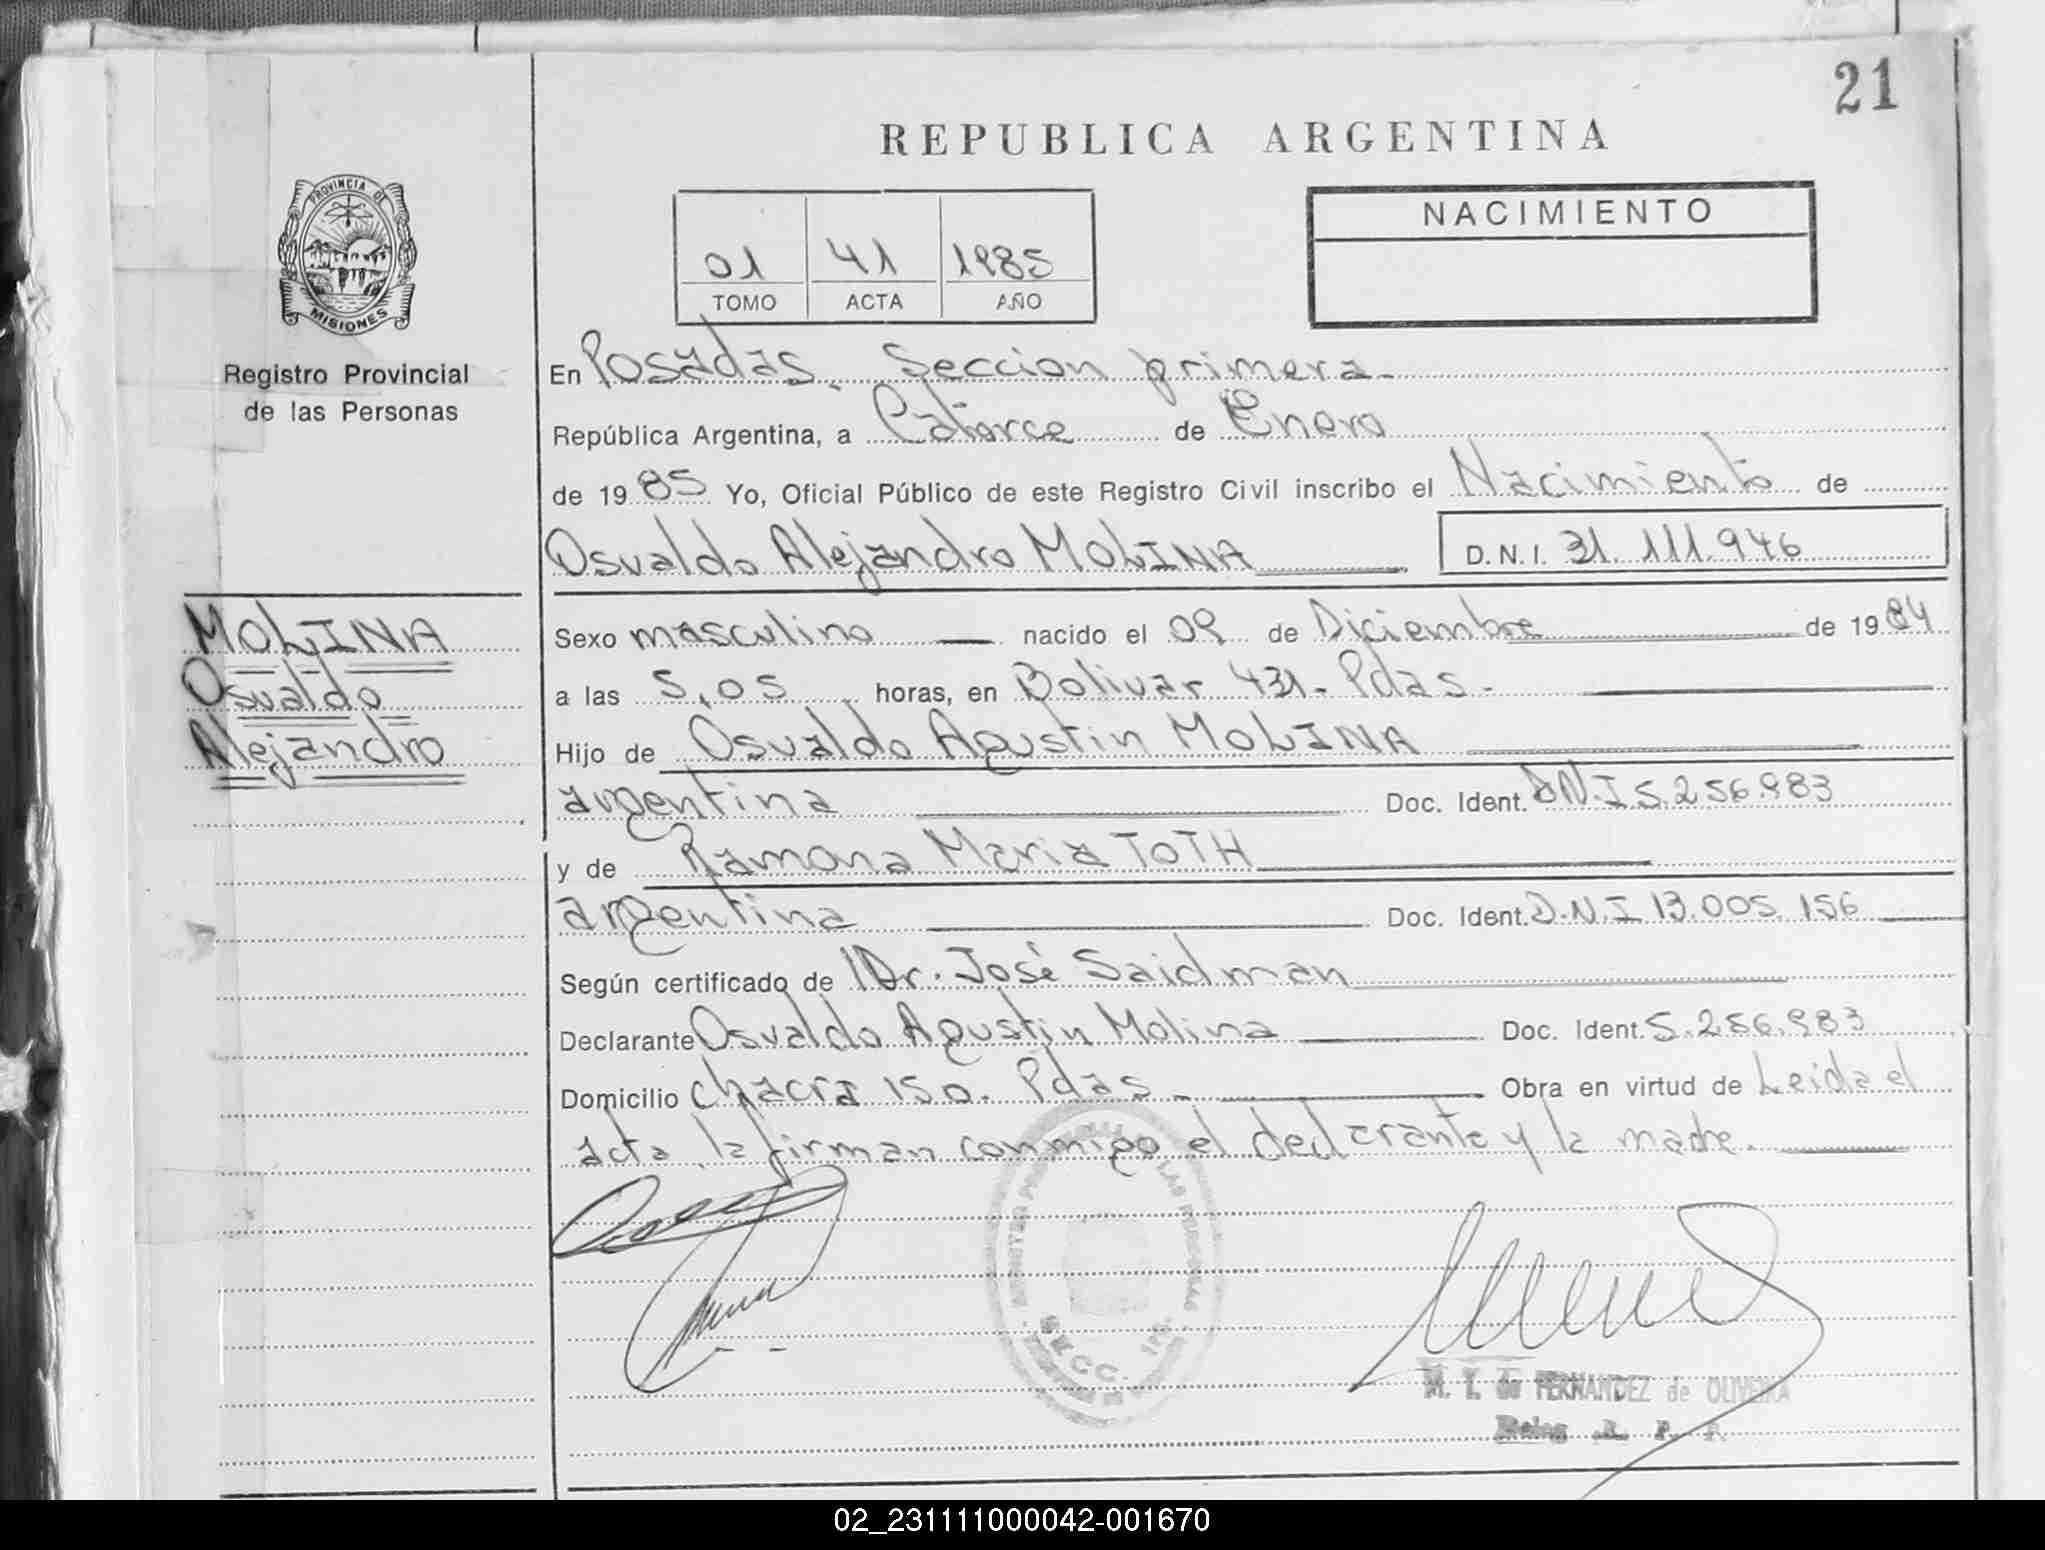 21
REPUBLICA ARGENTINA
PROVINCIA DE
MISIONES
01 41 1985
TOMO ACTA AÑO
NACIMIENTO
Registro Provincial
de las Personas
En Posadas. Seccion primera.
República Argentina, a Catorce de Enero
de 1985 Yo, Oficial Público de este Registro Civil inscribo el Nacimiento de
Osvaldo Alejandro MOLINA D.N.I. 31.111.946
MOLINA
Osvaldo
Alejandro
Sexo masculino nacido el 09 de Diciembre de 1984
a las 5,05 horas, en Bolivar 431. Pdas.
Hijo de Osvaldo Agustin MOLINA
argentina Doc. Ident. DN.I 5.256.983
y de Ramona Maria TOTH
argentina Doc. Ident. D.N.I 13.005.156
Según certificado de Dr. José Saidman
Declarante Osvaldo Agustin Molina Doc. Ident. 5.256.983
Domicilio chacra 150. Pdas. Obra en virtud de Leida el
acta la firman conmigo el declarante y la madre.
LAS PERSONAS
SECC. 1ra.
M. T. de FERNANDEZ de OLIVEIRA
R. P. P.
02_231111000042-001670